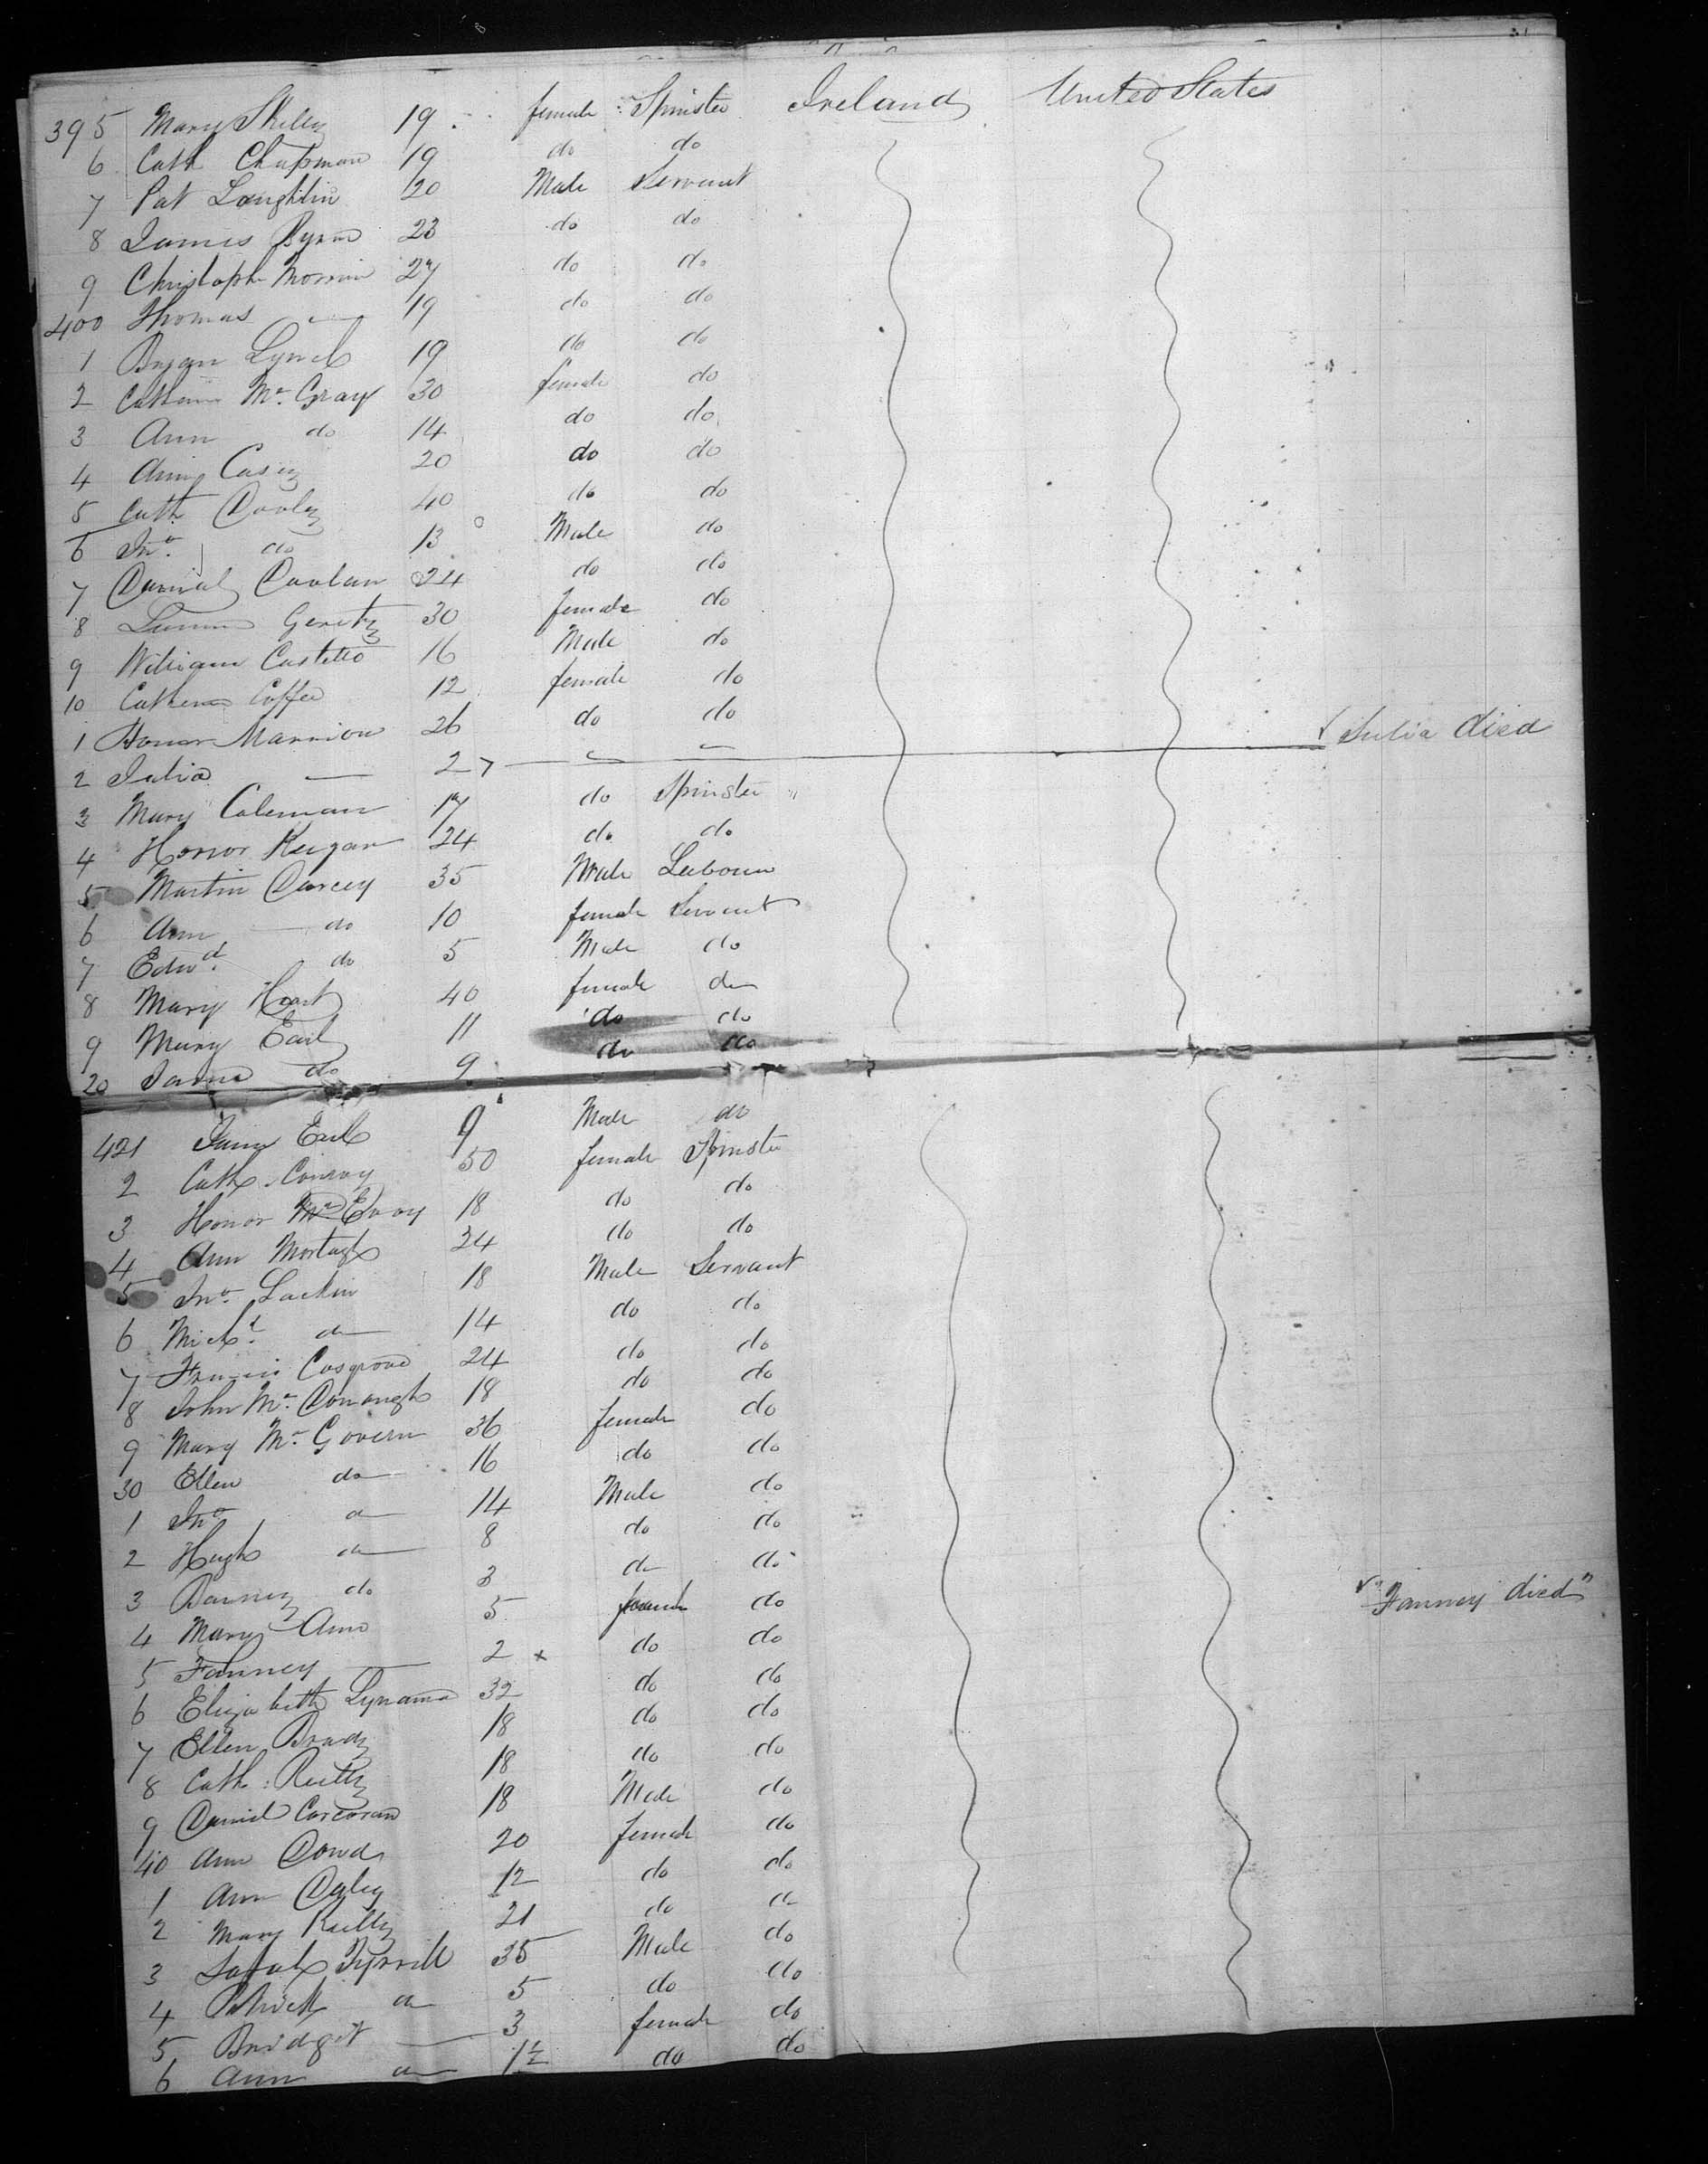 395 Mary Skelly 19 female Spinster Ireland United States
6 Cath Chapman 19 do do
7 Pat Loughlin 20 Male Servant
8 James Byrne 23 do do
9 Christoph Morrin 27 do do
400 Thomas — 19 do do
1 Bryan Lynch 19 do do
2 Catherine Mc Gray 30 female do
3 Ann do 14 do do
4 Ann Casey 20 do do
5 Cath Dooley 40 do do
6 Jno. do 13 Male do
7 Daniel Doolan 24 do do
8 Gerity 30 female do
9 William Costello 16 Male do
10 Catherine Coffee 12 female do
1 Honor Mannion 26 do do
2 Julia — 2 — Julia died
3 Mary Coleman 17 do Spinster
4 Honor Keegan 24 do do
5 Martin Darcey 35 Male Labourer
6 Ann do 10 female Servant
7 Edwd. do 5 Male do
8 Mary Hart 40 female do
9 Mary Earl 11 do do
20 do 9 do do
421 Earl 9 Male do
2 Cath. Conroy 50 female Spinster
3 Honor Mc Evoy 18 do do
4 Ann Mortagh 24 do do
5 Jno. Lackin 18 Male Servant
6 Michl. do 14 do do
7 Francis Cosgrove 24 do do
8 John Mc Donaugh 18 do do
9 Mary Mc Govern 36 female do
30 Ellen do 16 do do
1 Jno do 14 Male do
2 Hugh do 8 do do
3 Barney do 3 do do
4 Mary Ann 5 female do
5 Fanney — 2 x do do "Fanney died"
6 Elizabeth Lynama 32 do do
7 Ellen Brady 18 do do
8 Cath: Reilly 18 do do
9 Daniel Corcoran 18 Male do
40 Ann Dowd 20 female do
1 Ann Daley 12 do do
2 Mary Reilly 21 do do
3 Tyrrill 35 Male do
4 Patrick do 5 do do
5 Bridget — 3 female do
6 Ann do 1½ do do